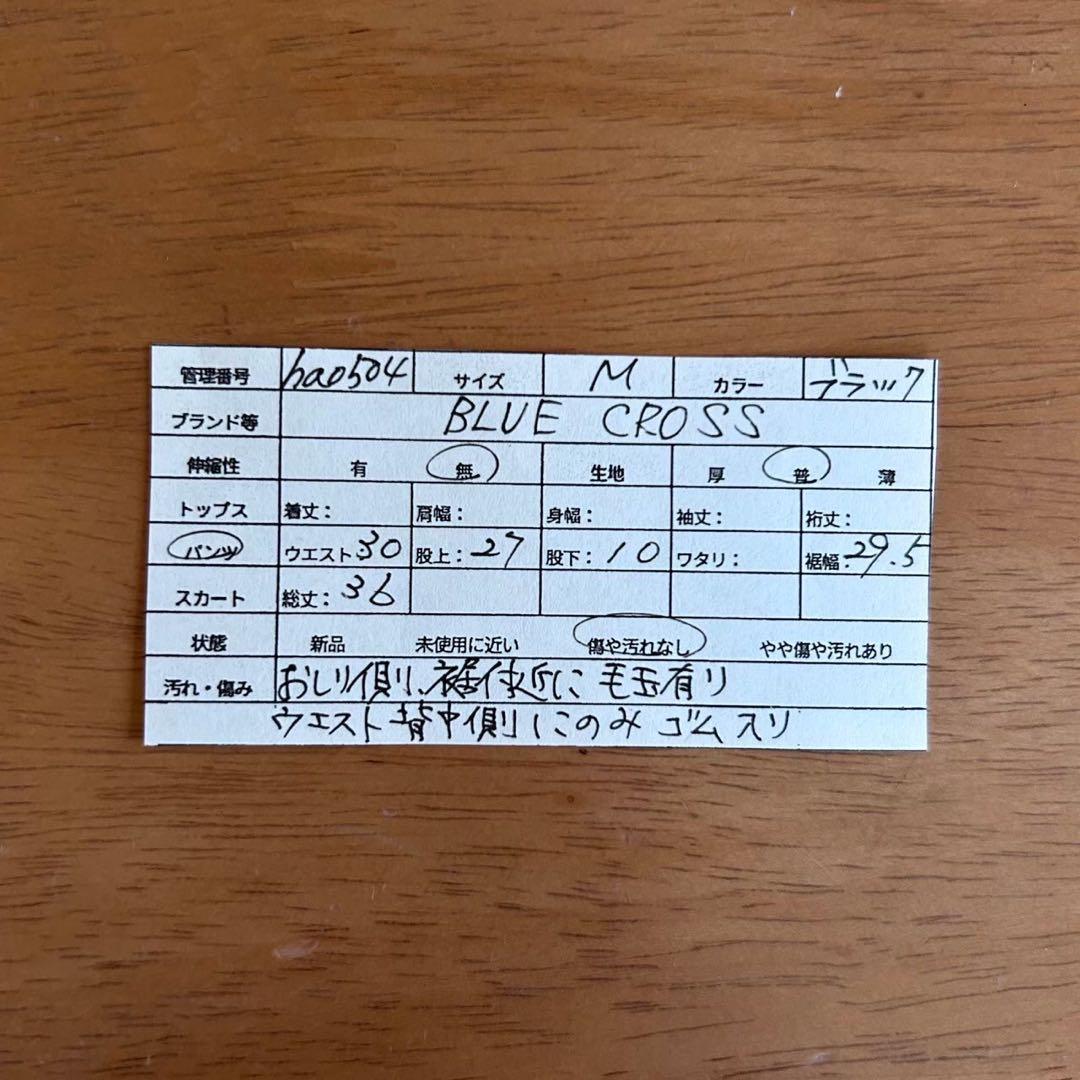 管理番号 hao504 サイズ M カラー ブラック
ブランド等 BLUE CROSS
伸縮性 有 無 生地 厚 普 薄
トップス 着丈： 肩幅： 身幅： 袖丈： 裄丈：
パンツ ウエスト 30 股上：27 股下：10 ワタリ： 裾幅：29.5
スカート 総丈：36
状態 新品 未使用に近い 傷や汚れなし やや傷や汚れあり
汚れ・傷み おしり側、裾付近に毛玉有り
ウエスト背中側にのみゴム入り